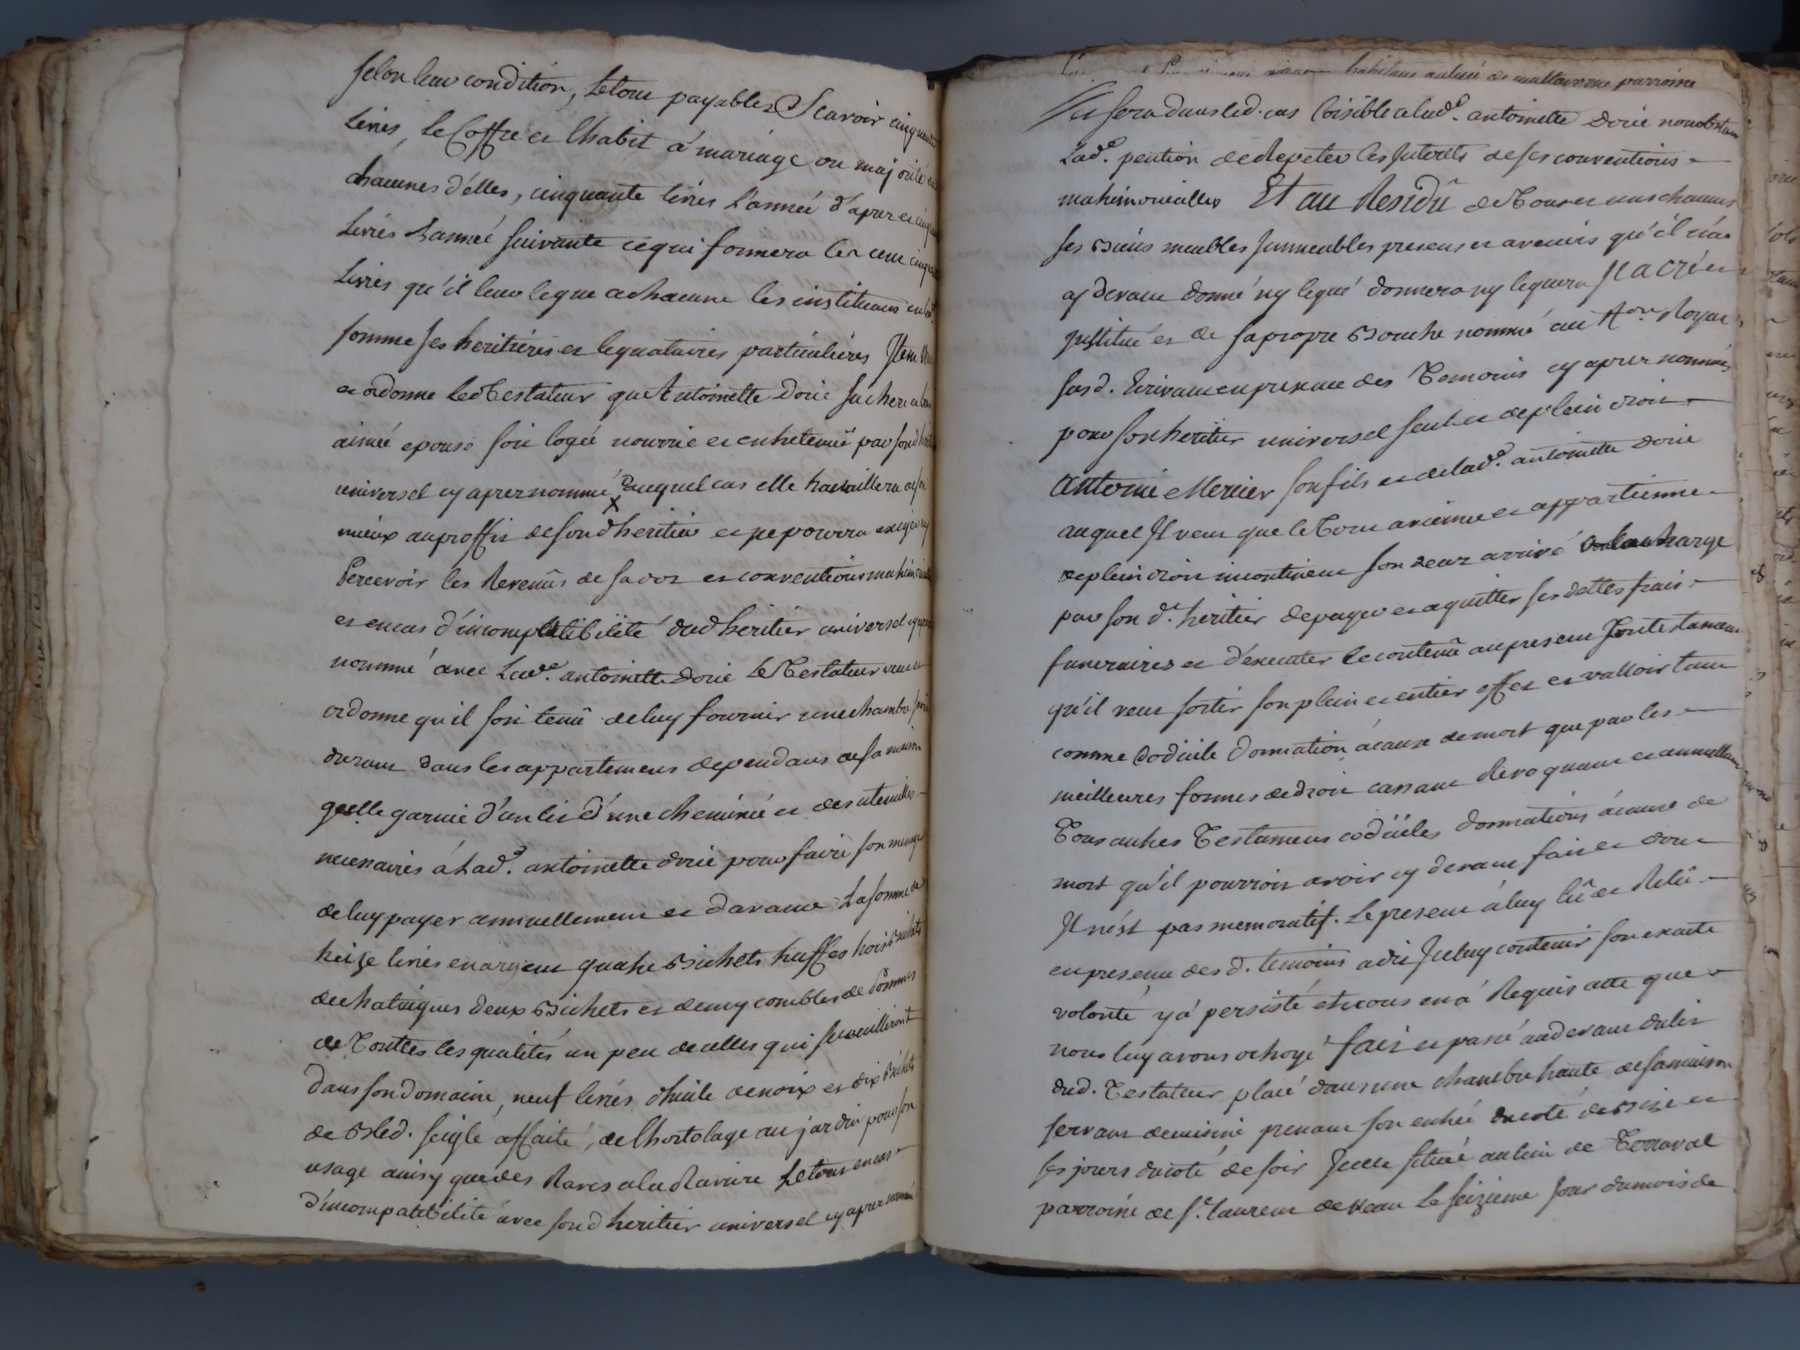 selon leur condition, Letout payables Scavoir cinquante
Livres, le Coffre et l'habit á mariage ou majorité de
chacunes d'élles, cinquante livres l'année d'apres et cinquante
Livres L'année suivante ce qui formera les cent cinquante
Livres qu'il leur legue a chacune les instituant en lad.
somme ses heritiéres et legataires particuliéres Item
et ordonne Led Testateur que Antoinette Dorié sa chere et bien
aimée epouse soit logée nourrie et entretenuë par sond heritier
universel cy apres nommé, auquel cas elle travaillera de son
mieux au proffit de sond heritier et ne pourra exiger ny
Percevoir les Revenûs de sa dot et conventions matrimonialles
et en cas d'incompatibilité dud heritier universel cy apres
nommé avec Lade. antoinette Dorié Le Testateur veut et
ordonne qu'il soit tenû de luy fournir une chambre sa vie
durant dans les appartements dependans de sa maison
qu'elle garnie d'un lit d'une cheminée et des utensilles
necessaires á Lade. antoinette dorié pour faire son menage
de luy payer annuellement et d'avance La somme de
treize livres en argent quatre Bichets truffes trois Bichets
de chataignes deux Bichets et demy combles de Pommes
de Touttes les qualités un peu de celles qui se cueilliront
dans son domaine, neuf livres d'huile de noix et dix Bichets
de Bled. seigle affaité, de l'hortolage au jardin pour son
usage ainsy que des Raves a la Raviere Le tout en cas
d'incompatibilité avec sond heritier universel cy apres nommé
habitans au lieu de maltaverne parroisse
Et sera dans led. cas loisible a lade. antoinette Dorié nonobstant
Lade. pention de Repeter les Interets de ses conventions
matrimonialles Et au Residû de Tous et uns chacuns
ses Biens meubles Immeubles presens et avenirs qu'il n'a
cy devant donné ny legué donnera ny leguera Il a créé et
Institué et de sa propre Bouche nommé au Nore Royal
susd. Ecrivant en presence des Temoins cy apres nommés
pour son heritier universel seul et de plein droit
Antoine Mercier son fils et de lade. antoinette Dorié
auquel Il veut que le Tout avienne et appartienne
de plein droit incontinent son deces arrivé a la charge
par son d. heritier de payer et aquitter ses dettes frais
funeraires et d'executer le contenû au present son testament
qu'il veut sortir son plein et entier effet et valloir tant
comme Codicile donnation á cause de mort que par les
meilleures formes de droit cassant Revoquant et annullant
Tous autres Testamens codiciles donnations á cause de
mort qu'il pourroit avoir cy devant fait et dont
Il n'est pas memoratif. Le present á luy lû et Relû
en presence des d. temoins a dit Iceluy contenir son exacte
volonté y á persisté et nous en á Requis acte que
nous luy avons octroyé fait et passé au devant du lit
dud. Testateur placé dans une chambre haute de sa maison
servant de cuisine prenant son entrée du coté de Bize et
ses jours du coté de soir Icelle située au lieu de Terraval
parroisse de St. Laurent de Vaux Le seizieme Jour du mois de